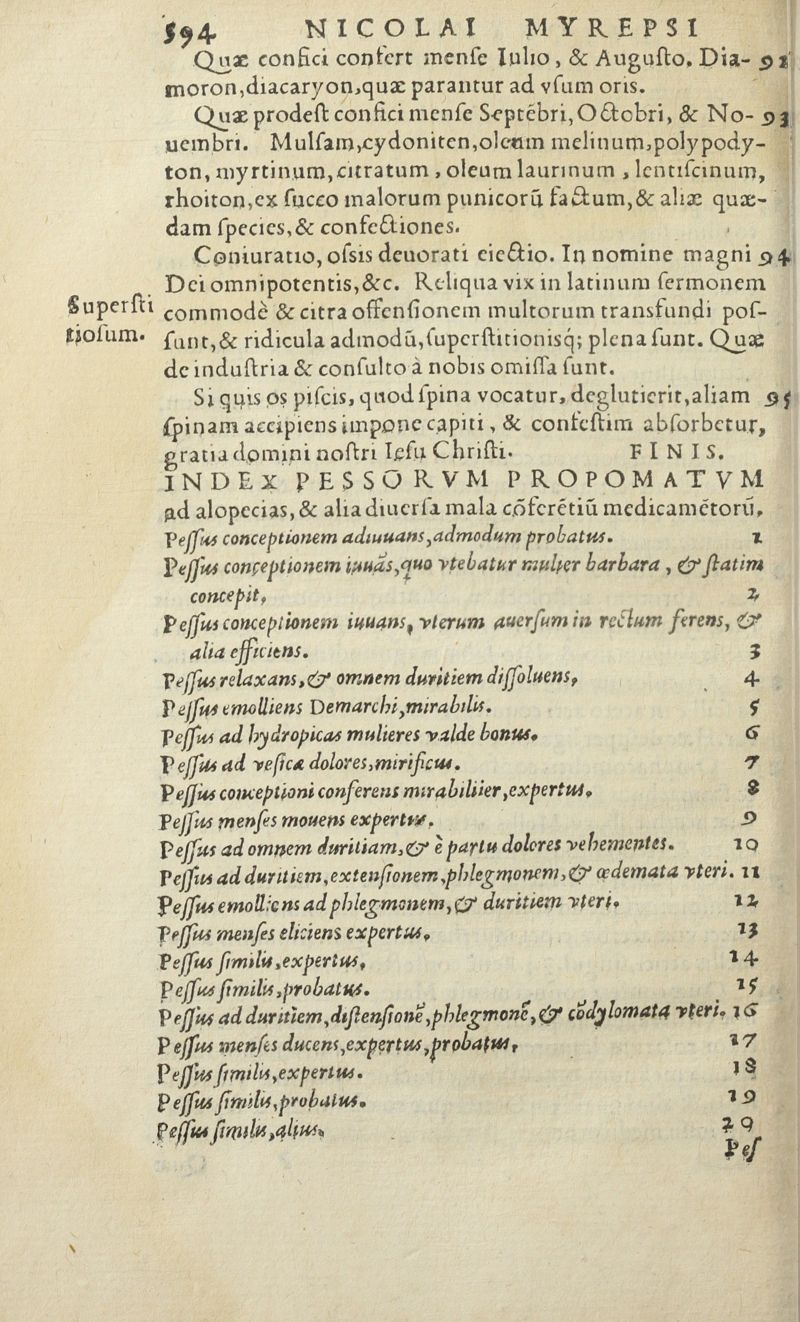 594 NICOLAI MYREPSI
Quæ confici confert menſe Iulio, & Auguſto. Dia- 92
moron,diacaryon,quæ parantur ad vſum oris.
Quæ prodeſt confici menſe Septēbri, Octobri, & No- 93
uembri. Mulſam,cydoniten,oleum melinum,polypody-
ton, myrtinum,citratum, oleum laurinum, lentiſcinum,
rhoiton,ex ſucco malorum punicorū factum,& aliæ quæ-
dam ſpecies,& confectiones.
Coniuratio, oſsis deuorati eiectio. In nomine magni 94
Dei omnipotentis,&c. Reliqua vix in latinum ſermonem
Superſti commodè & citra offenſionem multorum transfundi poſ-
tioſum. ſunt,& ridicula admodū,ſuperſtitionisq́; plena ſunt. Quæ
de induſtria & conſulto à nobis omiſſa ſunt.
Si quis os piſcis, quod ſpina vocatur, deglutierit,aliam 95
ſpinam accipiens impone capiti, & confeſtim abſorbetur,
gratia domini noſtri Ieſu Chriſti. FINIS.
INDEX PESSORVM PROPOMATVM
ad alopecias, & alia diuerſa mala cōferētiū medicamētorū.
Peſſus conceptionem adiuuans,admodum probatus. 1
Peſſus conceptionem iuuās,quo vtebatur mulier barbara, & ſtatim
concepit. 2
Peſſus conceptionem iuuans, vterum auerſum in rectum ferens, &
alia efficiens. 3
Peſſus relaxans, & omnem duritiem diſſoluens. 4
Peſſus emolliens Demarchi,mirabilis. 5
Peſſus ad hydropicas mulieres valde bonus. 6
Peſſus ad veſicæ dolores,mirificus. 7
Peſſus conceptioni conferens mirabiliter,expertus. 8
Peſſus menſes mouens expertus. 9
Peſſus ad omnem duritiam,& è partu dolores vehementes. 10
Peſſus ad duritiem,extenſionem,phlegmonem,& œdemata vteri. 11
Peſſus emolliens ad phlegmonem,& duritiem vteri. 12
Peſſus menſes eliciens expertus. 13
Peſſus ſimilis,expertus. 14
Peſſus ſimilis,probatus. 15
Peſſus ad duritiem,diſtenſionē,phlegmonē,& cōdylomata vteri. 16
Peſſus menſes ducens,expertus,probatus. 17
Peſſus ſimilis,expertus. 18
Peſſus ſimilis,probatus. 19
Peſſus ſimilis,alius. 20
Peſ